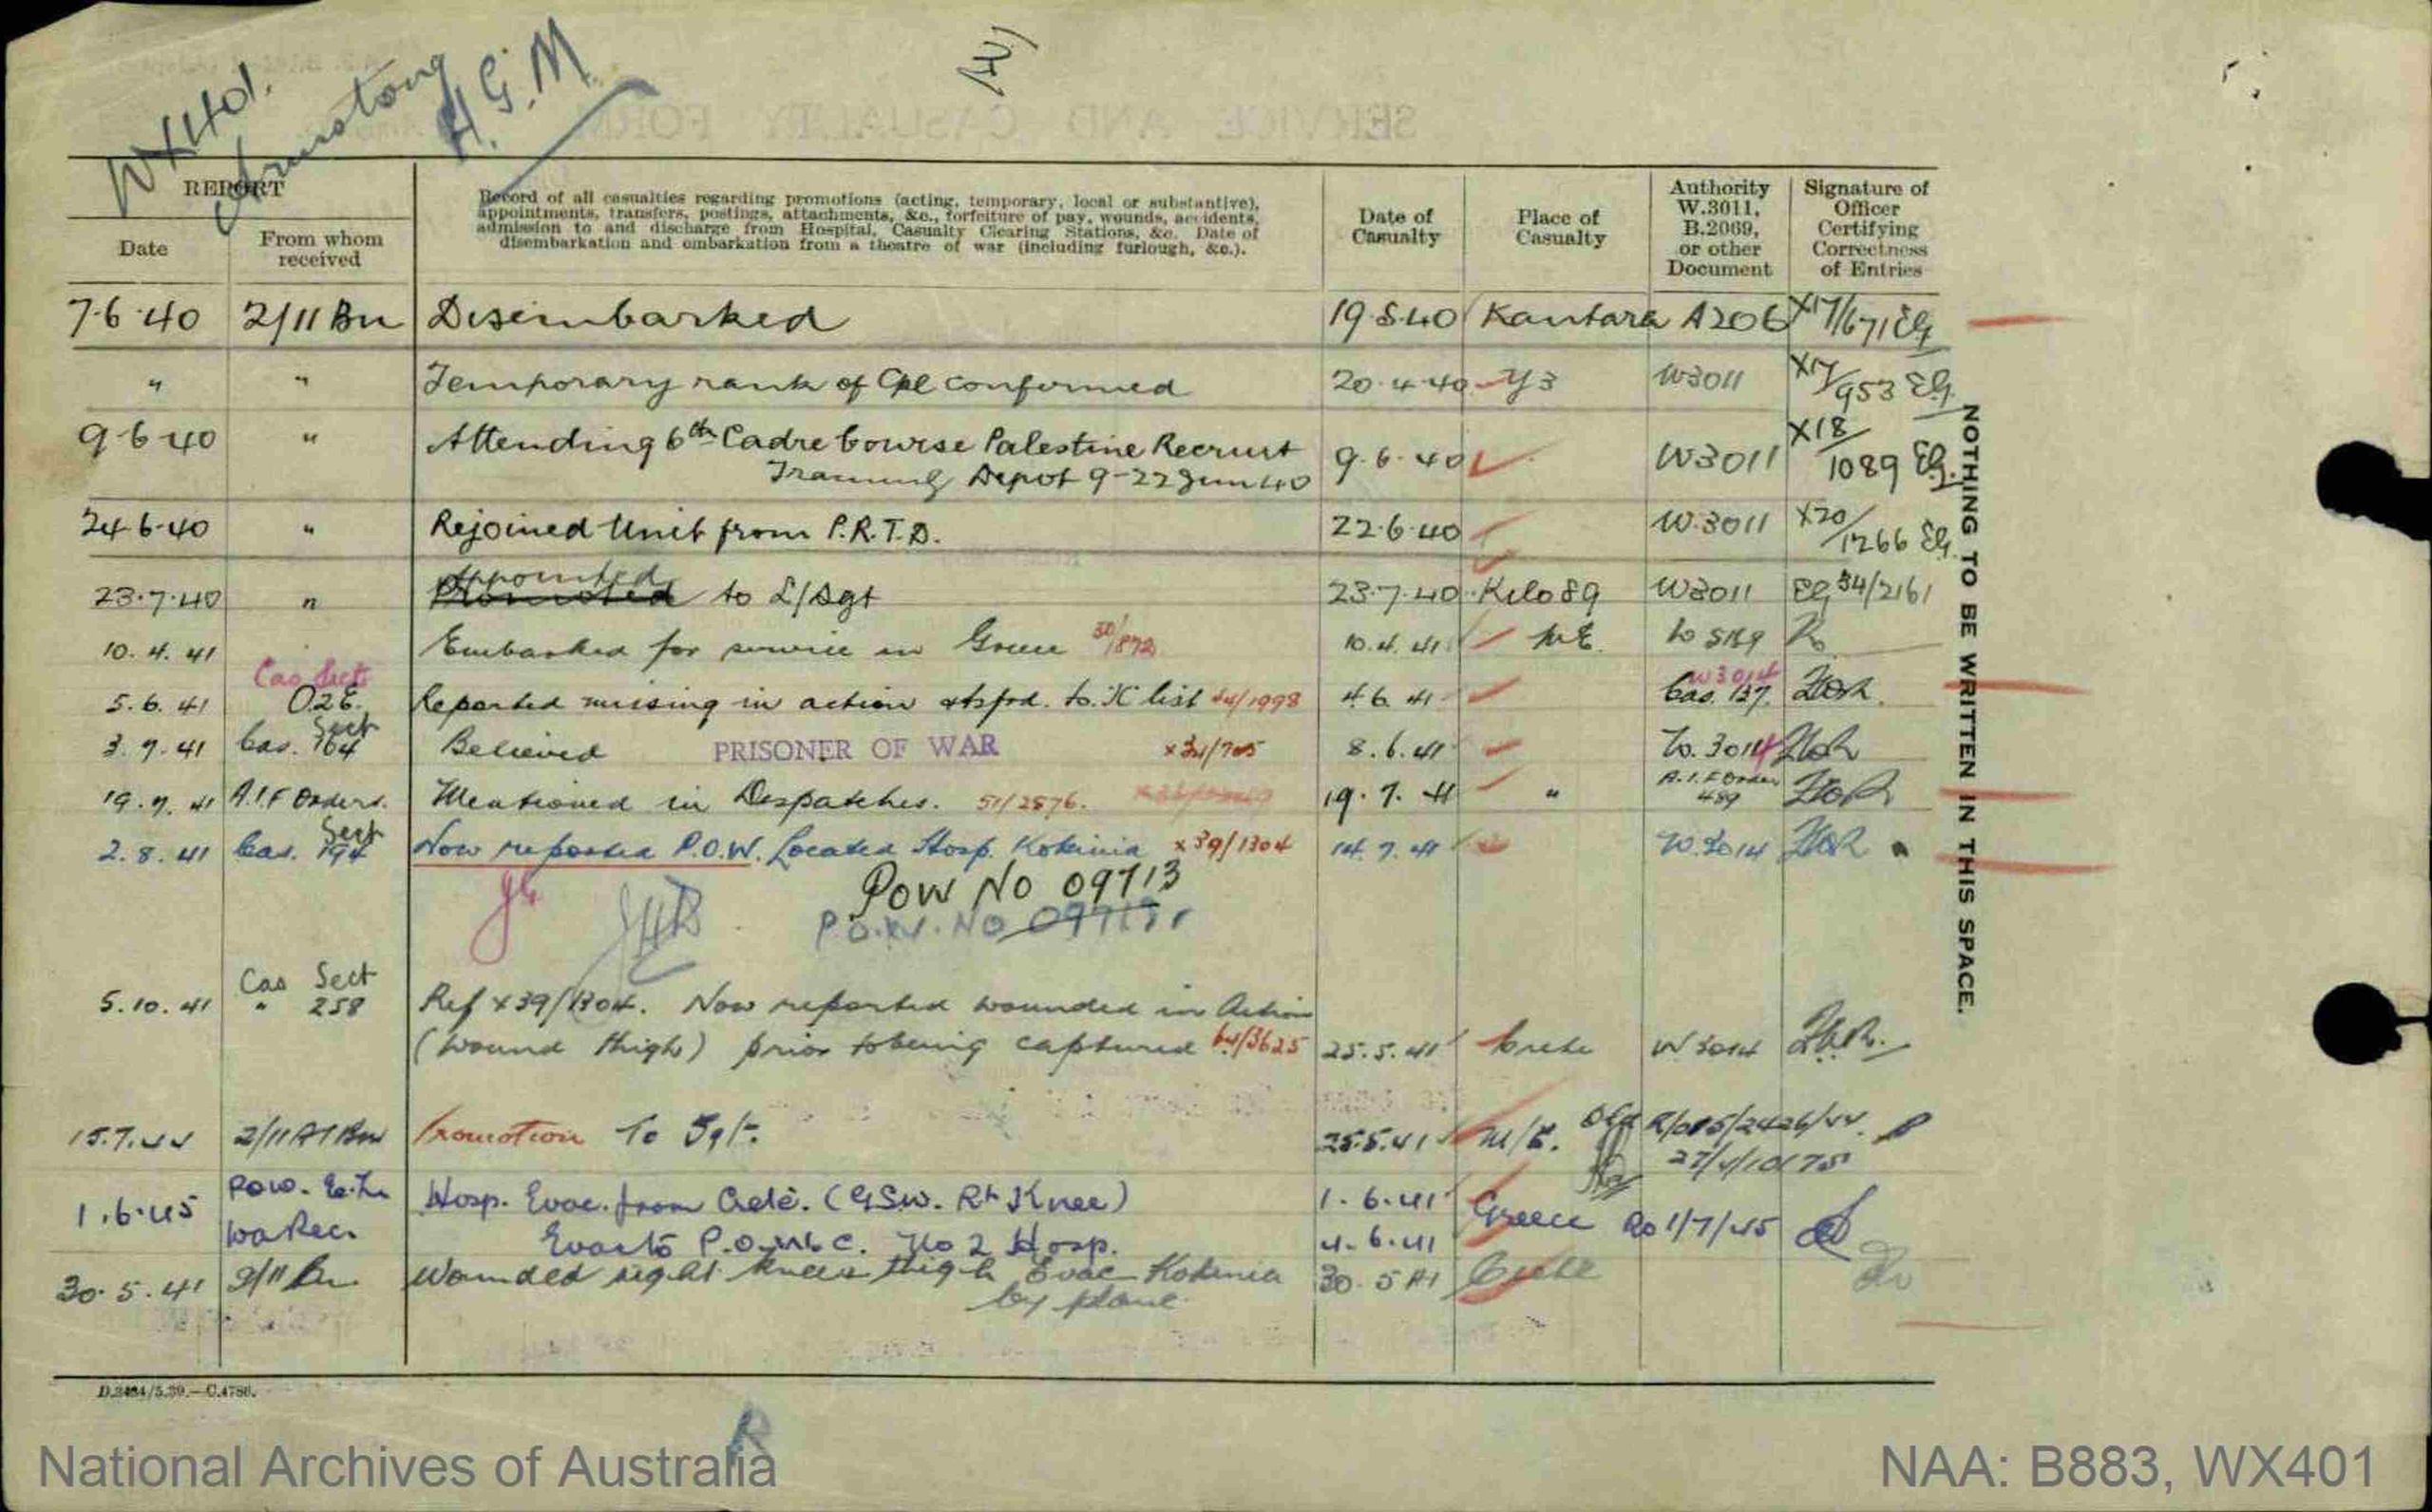 WX401.
Armstrong
H.G.M.
SERVICE AND CASUALTY FORM
REPORT
Date
From whom received
Record of all casualties regarding promotions (acting, temporary, local or substantive),
appointments, transfers, postings, attachments, &c., forfeiture of pay, wounds, accidents,
admission to and discharge from Hospital, Casualty Clearing Stations, &c. Date of
disembarkation and embarkation from a theatre of war (including furlough, &c.).
Date of Casualty
Place of Casualty
Authority W.3011, B.2069, or other Document
Signature of Officer Certifying Correctness of Entries
7.6.40 2/11 Bn Disembarked 19.5.40 Kantara A206 X17/671
" " Temporary rank of Cpl confirmed 20.4.40 W3011 X17/953
9.6.40 " Attending 6th Cadre Course Palestine Recruit 9.6.40 W3011 X18/1089
Training Depot 9-22 Jun 40
24.6.40 " Rejoined Unit from P.R.T.D. 22.6.40 W.3011 X20/1266
Appointed
23.7.40 " Promoted to L/Sgt 23.7.40 Kilo 89 W3011 34/2161
10.4.41 Embarked for service in Greece 30/872 10.4.41 M.E.
Cas Sect W3014
5.6.41 O2E. Reported missing in action & tsfrd. to X list 44/1998 4.6.41 Cas. 137.
Sect
3.7.41 Cas. 164 Believed PRISONER OF WAR x34/705 8.6.41 W.3014
19.7.41 A.I.F Orders. Mentioned in Despatches. 51/2576. 19.7.41 " A.I.F Order 489
Sect
2.8.41 Cas. 194 Now reported P.O.W. Located Hosp. Kokinia x39/1304 14.7.41 W.3014
POW No 09713
P.O.W. No
Cas Sect
5.10.41 " 258 Ref x39/1304. Now reported wounded in Action
(wound thigh) prior to being captured 64/3625 25.5.41 Crete W3014
15.7.44 2/11 Bn Promotion To Sgt. 25.5.41 M/E.
1.6.45 POW. Hosp. Evac. from Crete. (GSW. Rt Knee) 1.6.41 Greece Ro 1/7/45
WaRec. Evac to No 2 Hosp. 4.6.41
30.5.41 2/11 Bn Wounded right knee thigh Evac Kokinia 30.5.41 Crete
by plane
NOTHING TO BE WRITTEN IN THIS SPACE.
D.2484/5.39.—C.4786.
National Archives of Australia
NAA: B883, WX401